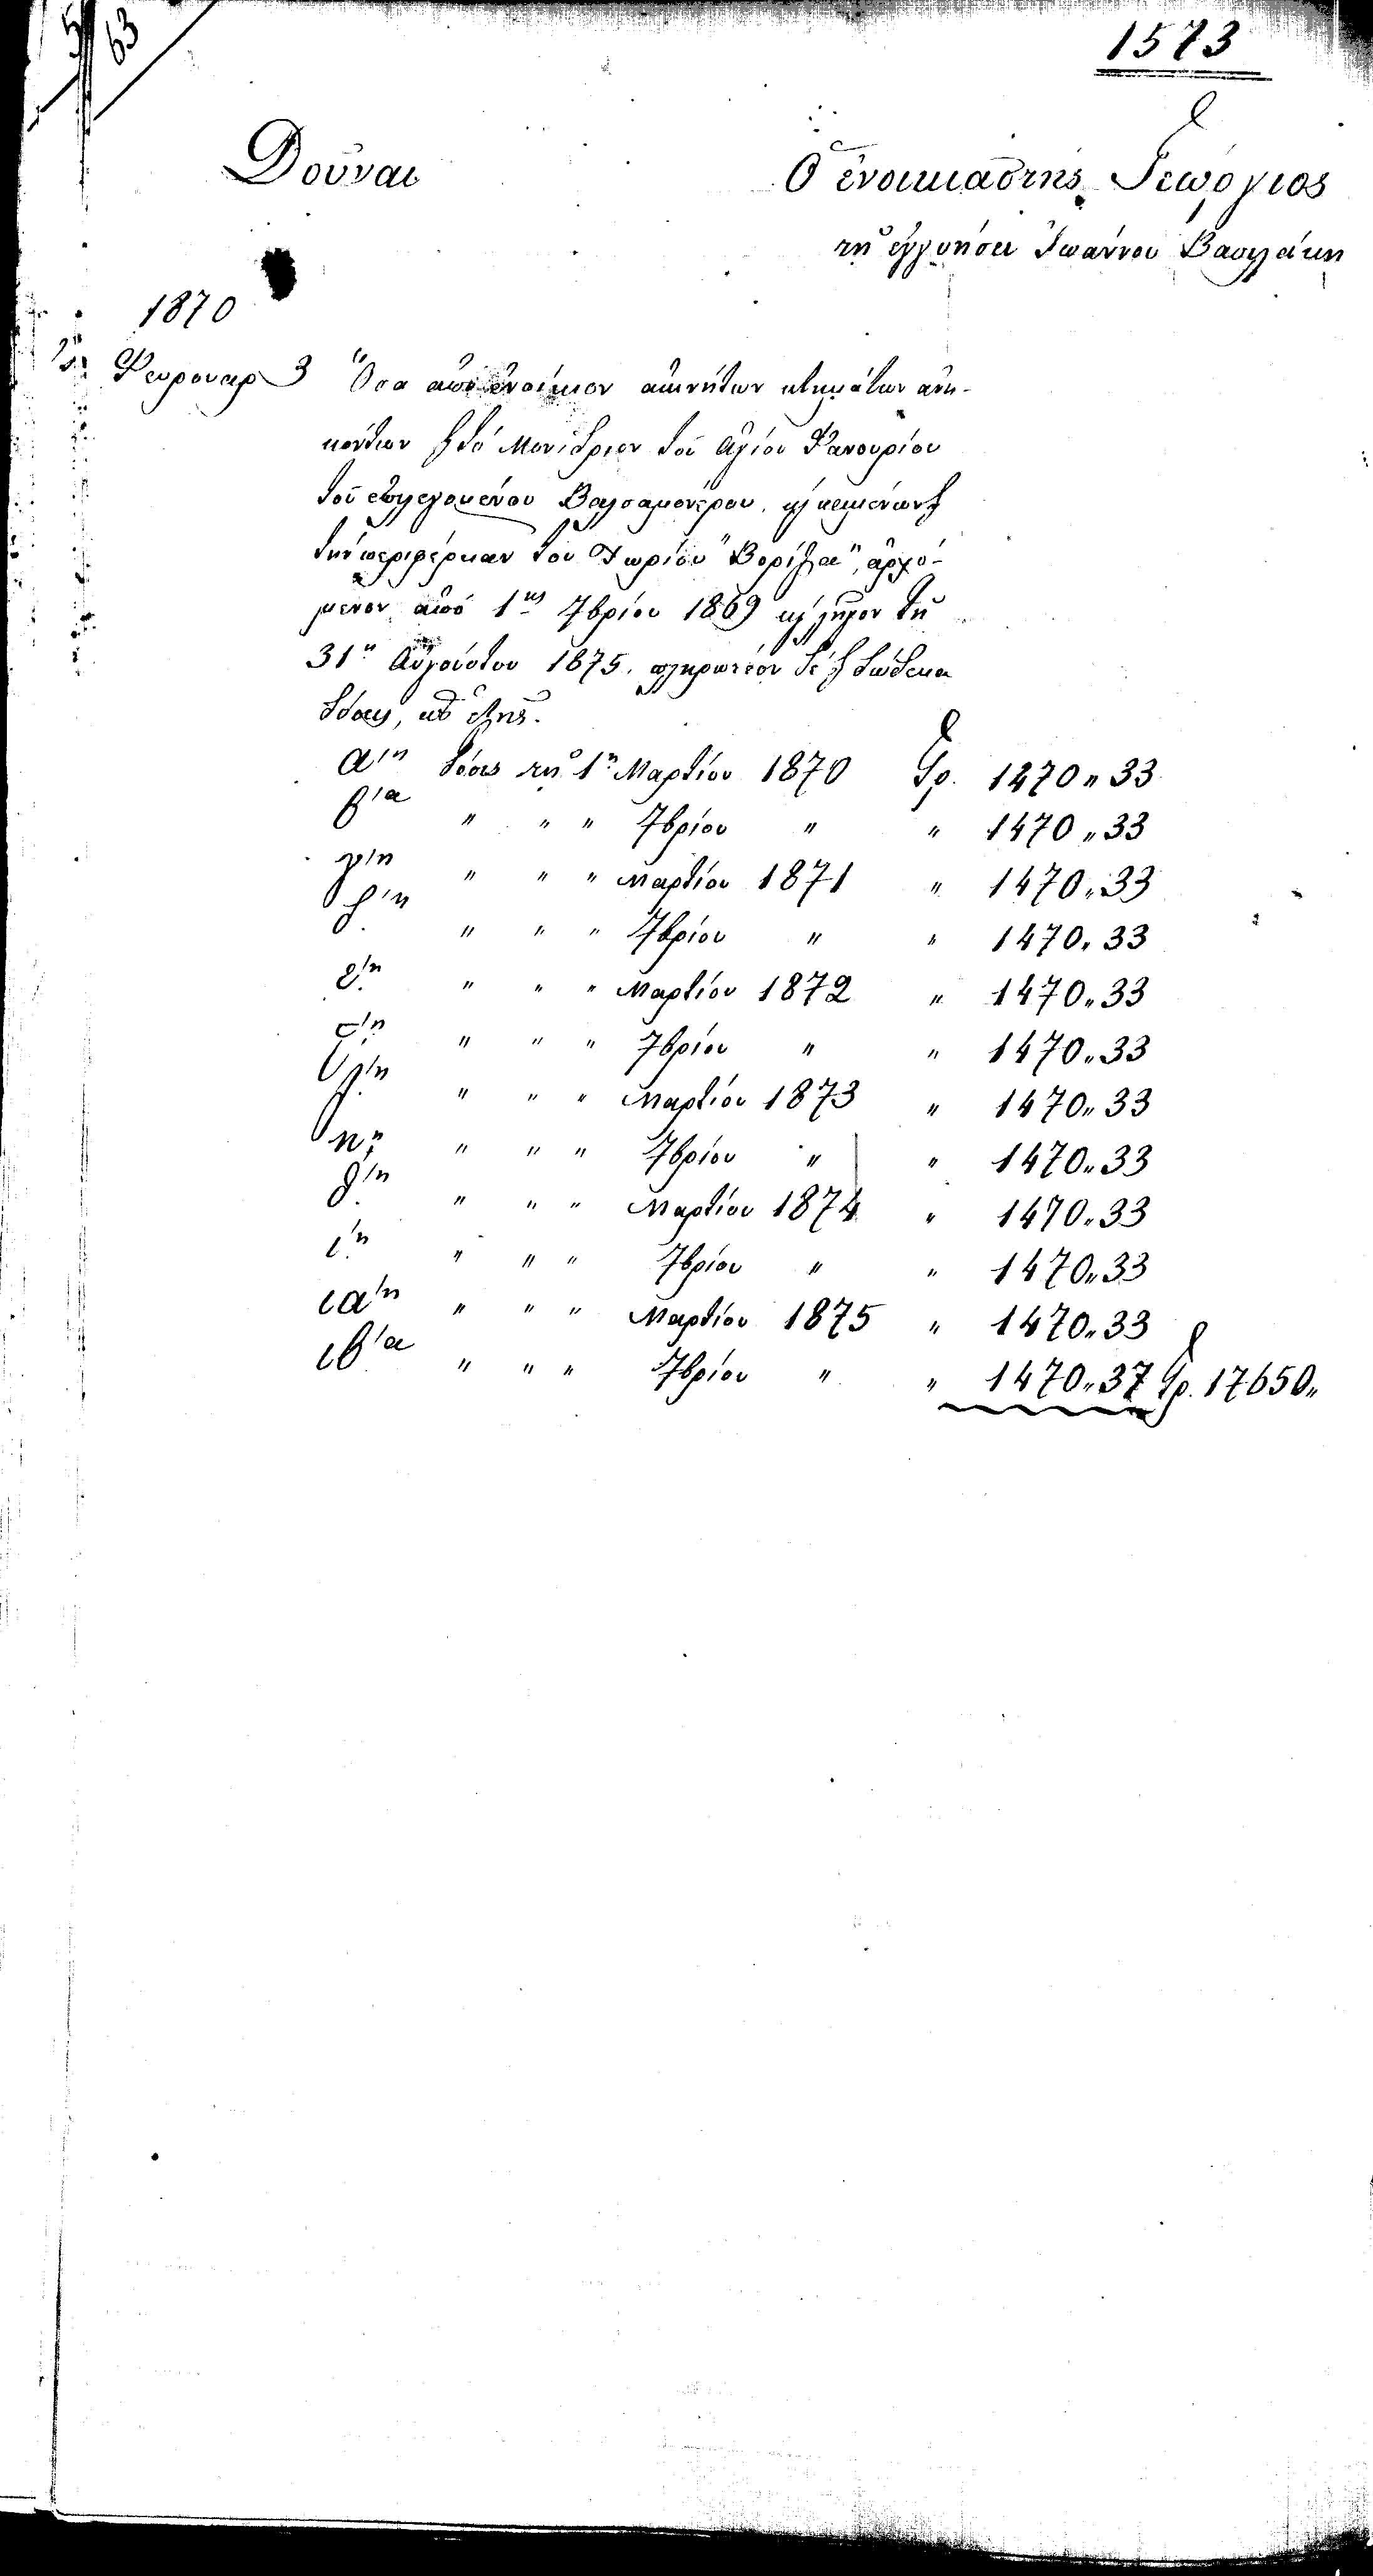 63
1573
Δοῦναι
Ὁ ἐνοικιαστὴς Γεώργιος
τῇ ἐγγυήσει Ἰωάννου Βασιλάκη
1870
Φευρουαρ 3 Ὅσα ἀπὸ ἐνοίκιον ἀκινήτων κτημάτων ἀνη-
κόντων εἰς τὸ Μονίδριον τοῦ Ἁγίου Φανουρίου
τοῦ ἐπιλεγομένου Βαλσαμονέρου, καὶ κειμένων εἰς
τὴν περιφέρειαν τοῦ Χωρίου "Βορίζα", ἀρχό-
μενον ἀπὸ 1ης 7βρίου 1869 καὶ λῆγον τῇ
31η Αὐγούστου 1875. πληρωτέον δὲ εἰς δώδεκα
δόσεις, ὡς ἑξῆς.
α'η δόσις τῇ 1η Μαρτίου 1870 Γρ. 1470 " 33
β'α " " " 7βρίου " " 1470 " 33
γ'η " " " Μαρτίου 1871 " 1470 " 33
δ'η " " " 7βρίου " " 1470 " 33
ε'η " " " Μαρτίου 1872 " 1470 " 33
ϛ'η " " " 7βρίου " " 1470 " 33
ζ'η " " " Μαρτίου 1873 " 1470 " 33
η'η " " " 7βρίου " " 1470 " 33
θ'η " " " Μαρτίου 1874 " 1470 " 33
ι'η " " " 7βρίου " " 1470 " 33
ια'η " " " Μαρτίου 1875 " 1470 " 33
ιβ'α " " " 7βρίου " " 1470 " 37 Γρ. 17650 "